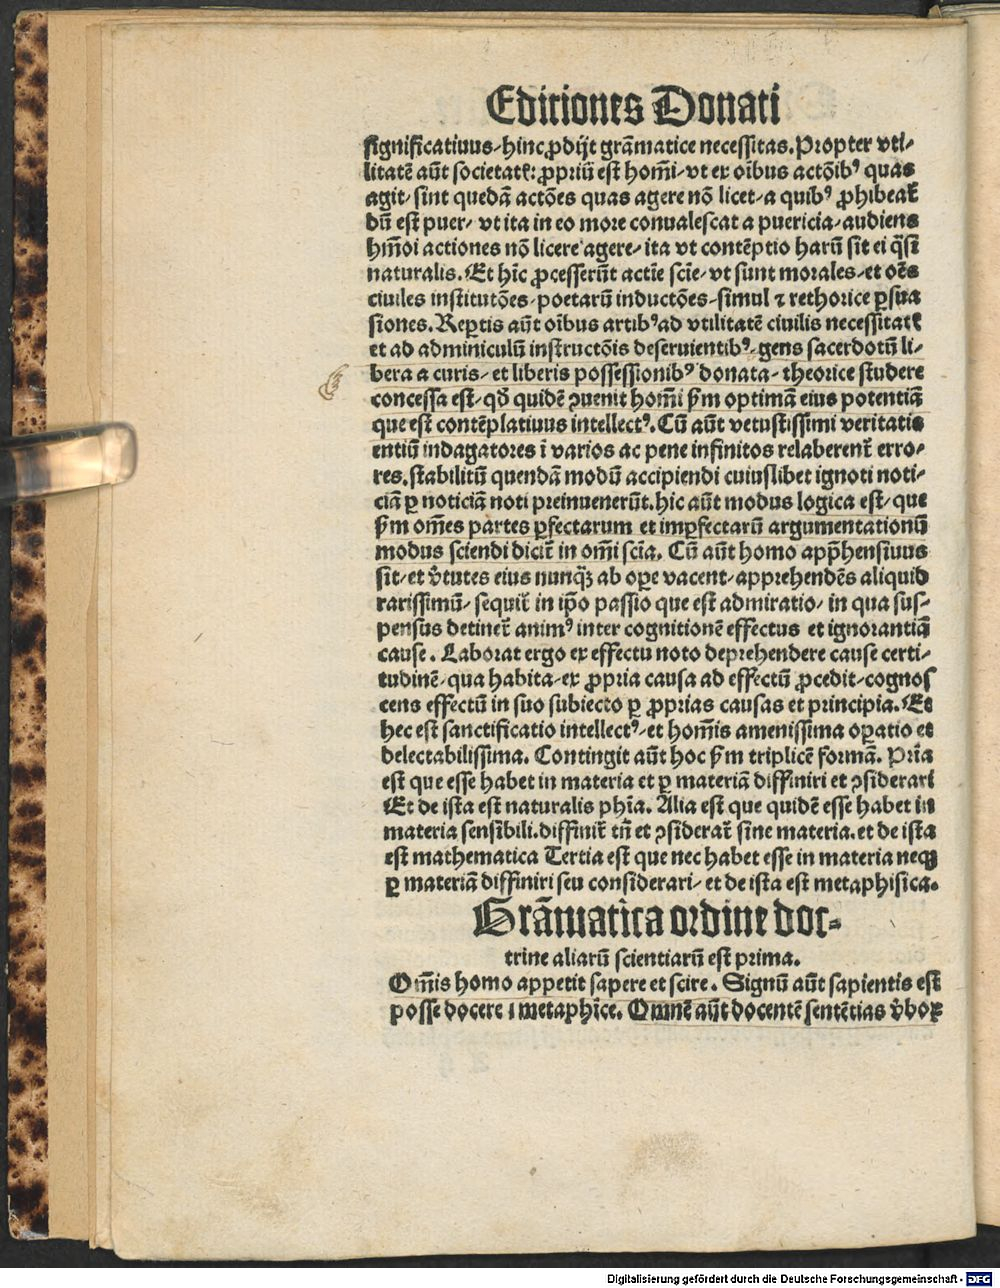 Editiones Donati
significatiuus/hinc ꝓdijt grāmatice necessitas. Propter vti/
litatē aūt societatꝭ: ꝓpriū est homī/vt ex oībus actōibꝰ quas
agit/sint quedā actōes quas agere nō licet/a quibꝰ ꝓhibeat̄
dū est puer/vt ita in eo more conualescat a puericia/audiens
hmōi actiones nō licere agere/ita vt contēptio harū sit ei q̄si
naturalis. Et hīc ꝓcesserūt actīe scīe/vt sunt morales/et oēs
ciuiles institutōes/poetarū inductōes/simul ⁊ rethorice ꝑsua
siones. Reꝑtis aūt oībus artibꝰ ad vtilitatē ciuilis necessitatꝭ
et ad adminiculū instructōis deseruientibꝰ/gens sacerdotū li/
bera a curis/et liberis possessionibꝰ donata/theorice studere
concessa est/qd̄ quidē ꝯuenit homī ẜm optimā eius potentiā
que est contēplatiuus intellectꝰ. Cū aūt vetustissimi veritatis
entiū indagatores ī varios ac pene infinitos relaberent̄ erro/
res. stabilitū quendā modū accipiendi cuiuslibet ignoti noti/
ciā ꝑ noticiā noti preinuenerūt. hic aūt modus logica est/que
ẜm omēs partes ꝑfectarum et imꝑfectarū argumentationū
modus sciendi dicit̄ in omī scīa. Cū aūt homo app̄hensiuus
sit/et v̄tutes eius nunqȝ̄ ab oꝑe vacent/apprehendēs aliquid
rarissimū/sequit̄ in ip̄o passio que est admiratio/in qua sus/
pensus detinet̄ animꝰ inter cognitionē effectus et ignorantiā
cause. Laborat ergo ex effectu noto deprehendere cause certi/
tudinē/qua habita/ex ꝓpria causa ad effectū ꝓcedit/cognos
cens effectū in suo subiecto ꝑ ꝓprias causas et principia. Et
hec est sanctificatio intellectꝰ/et homīs amenissima oꝑatio et
delectabilissima. Contingit aūt hoc ẜm triplicē formā. Prīa
est que esse habet in materia et ꝑ materiā diffiniri et ꝯsiderari
Et de ista est naturalis phīa. Alia est que quidē esse habet in
materia sensibili. diffinit̄ tn̄ et ꝯsiderat̄ sine materia. et de ista
est mathematica Tertia est que nec habet esse in materia neqȝ
ꝑ materiā diffiniri seu considerari/et de ista est metaphisica.
Grāmatica ordine doc⸗
trine aliarū scientiarū est prima.
Omīs homo appetit sapere et scire. Signū aūt sapientis est
posse docere ı metaphīce. Omnē aūt docentē sentētias v̄boꝝ
Digitalisierung gefördert durch die Deutsche Forschungsgemeinschaft - DFG